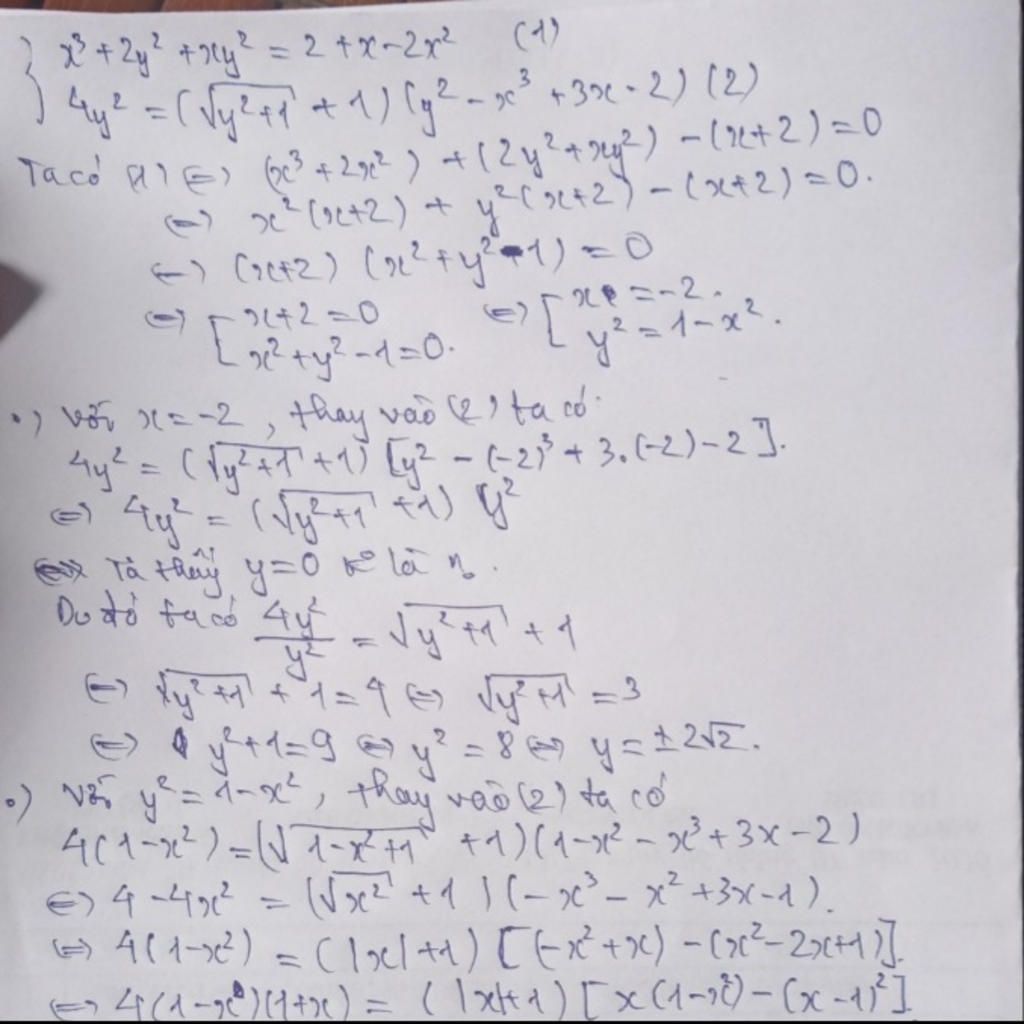 { x³ + 2y² + xy² = 2 + x - 2x² (1)
4y² = (√(y²+1) + 1) (y² - x³ + 3x - 2) (2)
Ta có (1) ⇔ (x³ + 2x²) + (2y² + xy²) - (x+2) = 0
⇔ x²(x+2) + y²(x+2) - (x+2) = 0.
⇔ (x+2) (x² + y² - 1) = 0
⇔ [ x+2 = 0 ⇔ [ x = -2.
x² + y² - 1 = 0. y² = 1 - x².
•) Với x = -2, thay vào (2) ta có
4y² = (√(y²+1) + 1) [y² - (-2)³ + 3.(-2) - 2].
⇔ 4y² = (√(y²+1) + 1) y²
Ta thấy y = 0 là n₀.
Do đó ta có 4y²/y² = √(y²+1) + 1
⇔ √(y²+1) + 1 = 4 ⇔ √(y²+1) = 3
⇔ y² + 1 = 9 ⇔ y² = 8 ⇔ y = ±2√2.
•) Với y² = 1 - x², thay vào (2) ta có
4(1 - x²) = (√(1-x²+1) + 1)(1 - x² - x³ + 3x - 2)
⇔ 4 - 4x² = (√x² + 1)(-x³ - x² + 3x - 1).
⇔ 4(1 - x²) = (|x| + 1) [(-x² + x) - (x² - 2x + 1)].
⇔ 4(1 - x)(1 + x) = (|x| + 1) [x(1 - x²) - (x - 1)²]